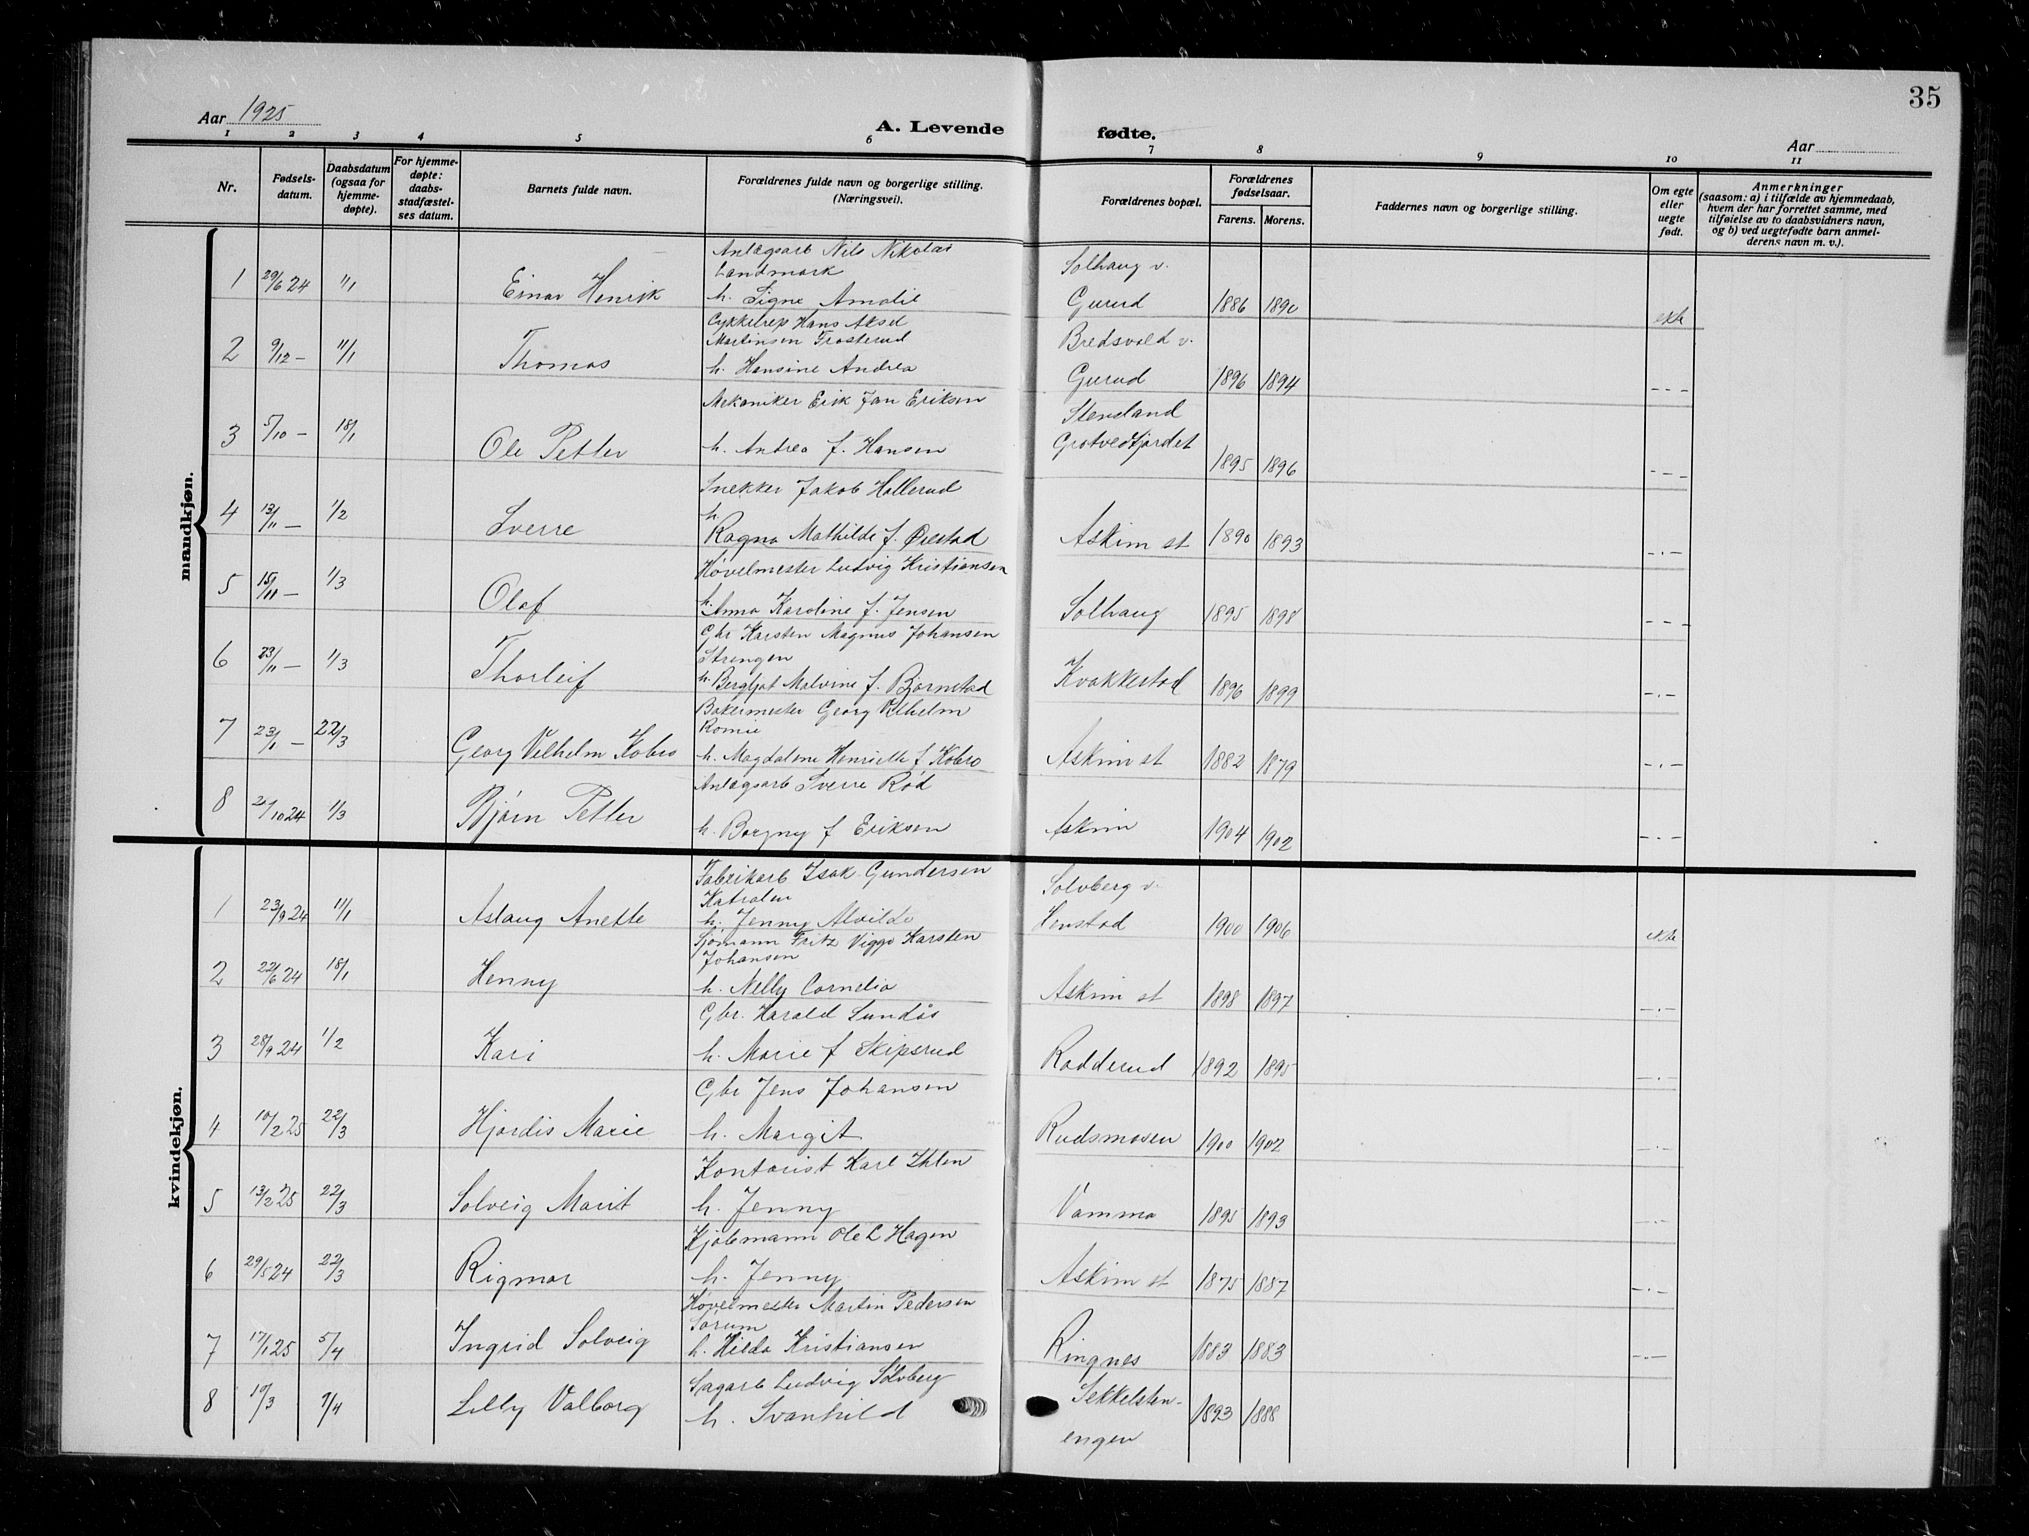 35
Aar 1925
A. Levende fødte.
Aar
1 2 3 4 5 6 7 8 9 10 11
Nr.
Fødsels-
datum.
Daabsdatum
(ogsaa for
hjemme-
døpte).
For hjemme-
døpte:
daabs-
stadfæstel-
ses datum.
Barnets fulde navn.
Forældrenes fulde navn og borgerlige stilling.
(Næringsvei).
Forældrenes bopæl.
Forældrenes
fødselsaar.
Farens. Morens.
Faddernes navn og borgerlige stilling.
Om egte
eller
uegte
født.
Anmerkninger
(saasom: a) i tilfælde av hjemmedaab,
hvem der har forrettet samme, med
tilføielse av to daabsvidners navn,
og b) ved uegtefødte barn anmel-
derens navn m. v.).
mandkjøn.
Anlægsarb Nils Nikolai
Landmark
Solhaug v.
1 29/6 24 1/1 Einar Henrik h. Signe Amalie Gurud 1886 1890 ekte
Cykkelrep Hans Aksel
Martinsen Frosterud
Bredsvold v.
2 9/12 – 11/1 Thomas h. Hansine Andrea Gurud 1896 1894 – – –
Mekaniker Erik Jan Eriksen
Stensland
3 5/10 – 18/1 Ole Petter h. Andrea f. Hansen Grotvedtfjordet 1895 1896 – – –
Snekker Jakob Hollerud
h.
4 13/11 – 1/2 Sverre Ragna Mathilde f. Ørestad Askim st 1890 1893 – . –
Høvelmester Ludvig Kristiansen
5 15/11 – 1/3 Olaf h. Anna Karoline f. Jensen Solhaug 1895 1898 – – –
Gbr Karsten Magnus Johansen
Strengen
6 23/11 – 1/3 Thorleif h. Bergljot Malvine f. Bjørnstad Kvakkestad 1896 1899 – . –
Bakermester Georg Vilhelm
Romie
7 23/1 – 22/3 Georg Vilhelm Kobro h. Magdalene Henriette f Kobro Askim st 1882 1879 – . –
Anlægsarb Sverre Rød
8 2/10 24 1/3 Bjørn Petter h. Borgny f Eriksen Askim 1904 1902 – . –
kvindekjøn.
Fabrikarb Isak Gundersen
Katralen
Solvberg v.
1 23/9 24 11/1 Aslaug Anette h. Jenny Alvilde Henstad 1900 1906 ekte
Sjømann Fritz Viggo Karsten
Johansen
2 22/6 24 18/1 Henny h. Nelly Cornelia Askim st 1898 1897 – . –
Gbr. Harald Sundås
3 28/9 24 1/2 Kari h. Marie f Skipsrud Rodderud 1892 1895 – . –
Gbr Jens Johansen
4 10/2 25 22/3 Hjørdis Marie h. Margit Rudsmosen 1900 1902 – . –
Kontorist Karl Ihlen
5 13/2 25 22/3 Solveig Marit h. Jenny Vamma 1895 1893 – . –
Kjøbmann Ole L Hagen
6 29/5 24 22/3 Rigmor h. Jenny Askim st 1875 1887 – . –
Høvelmester Martin Pedersen
Sørum
7 17/1 25 5/4 Ingrid Solveig h. Hilda Kristiansen Ringnes 1883 1883 – . –
Sagarb Ludvig Sølvberg
8 19/3 9/4 Lilly Valborg h. Svanhild Sekkelsten- 1893 1888
engen